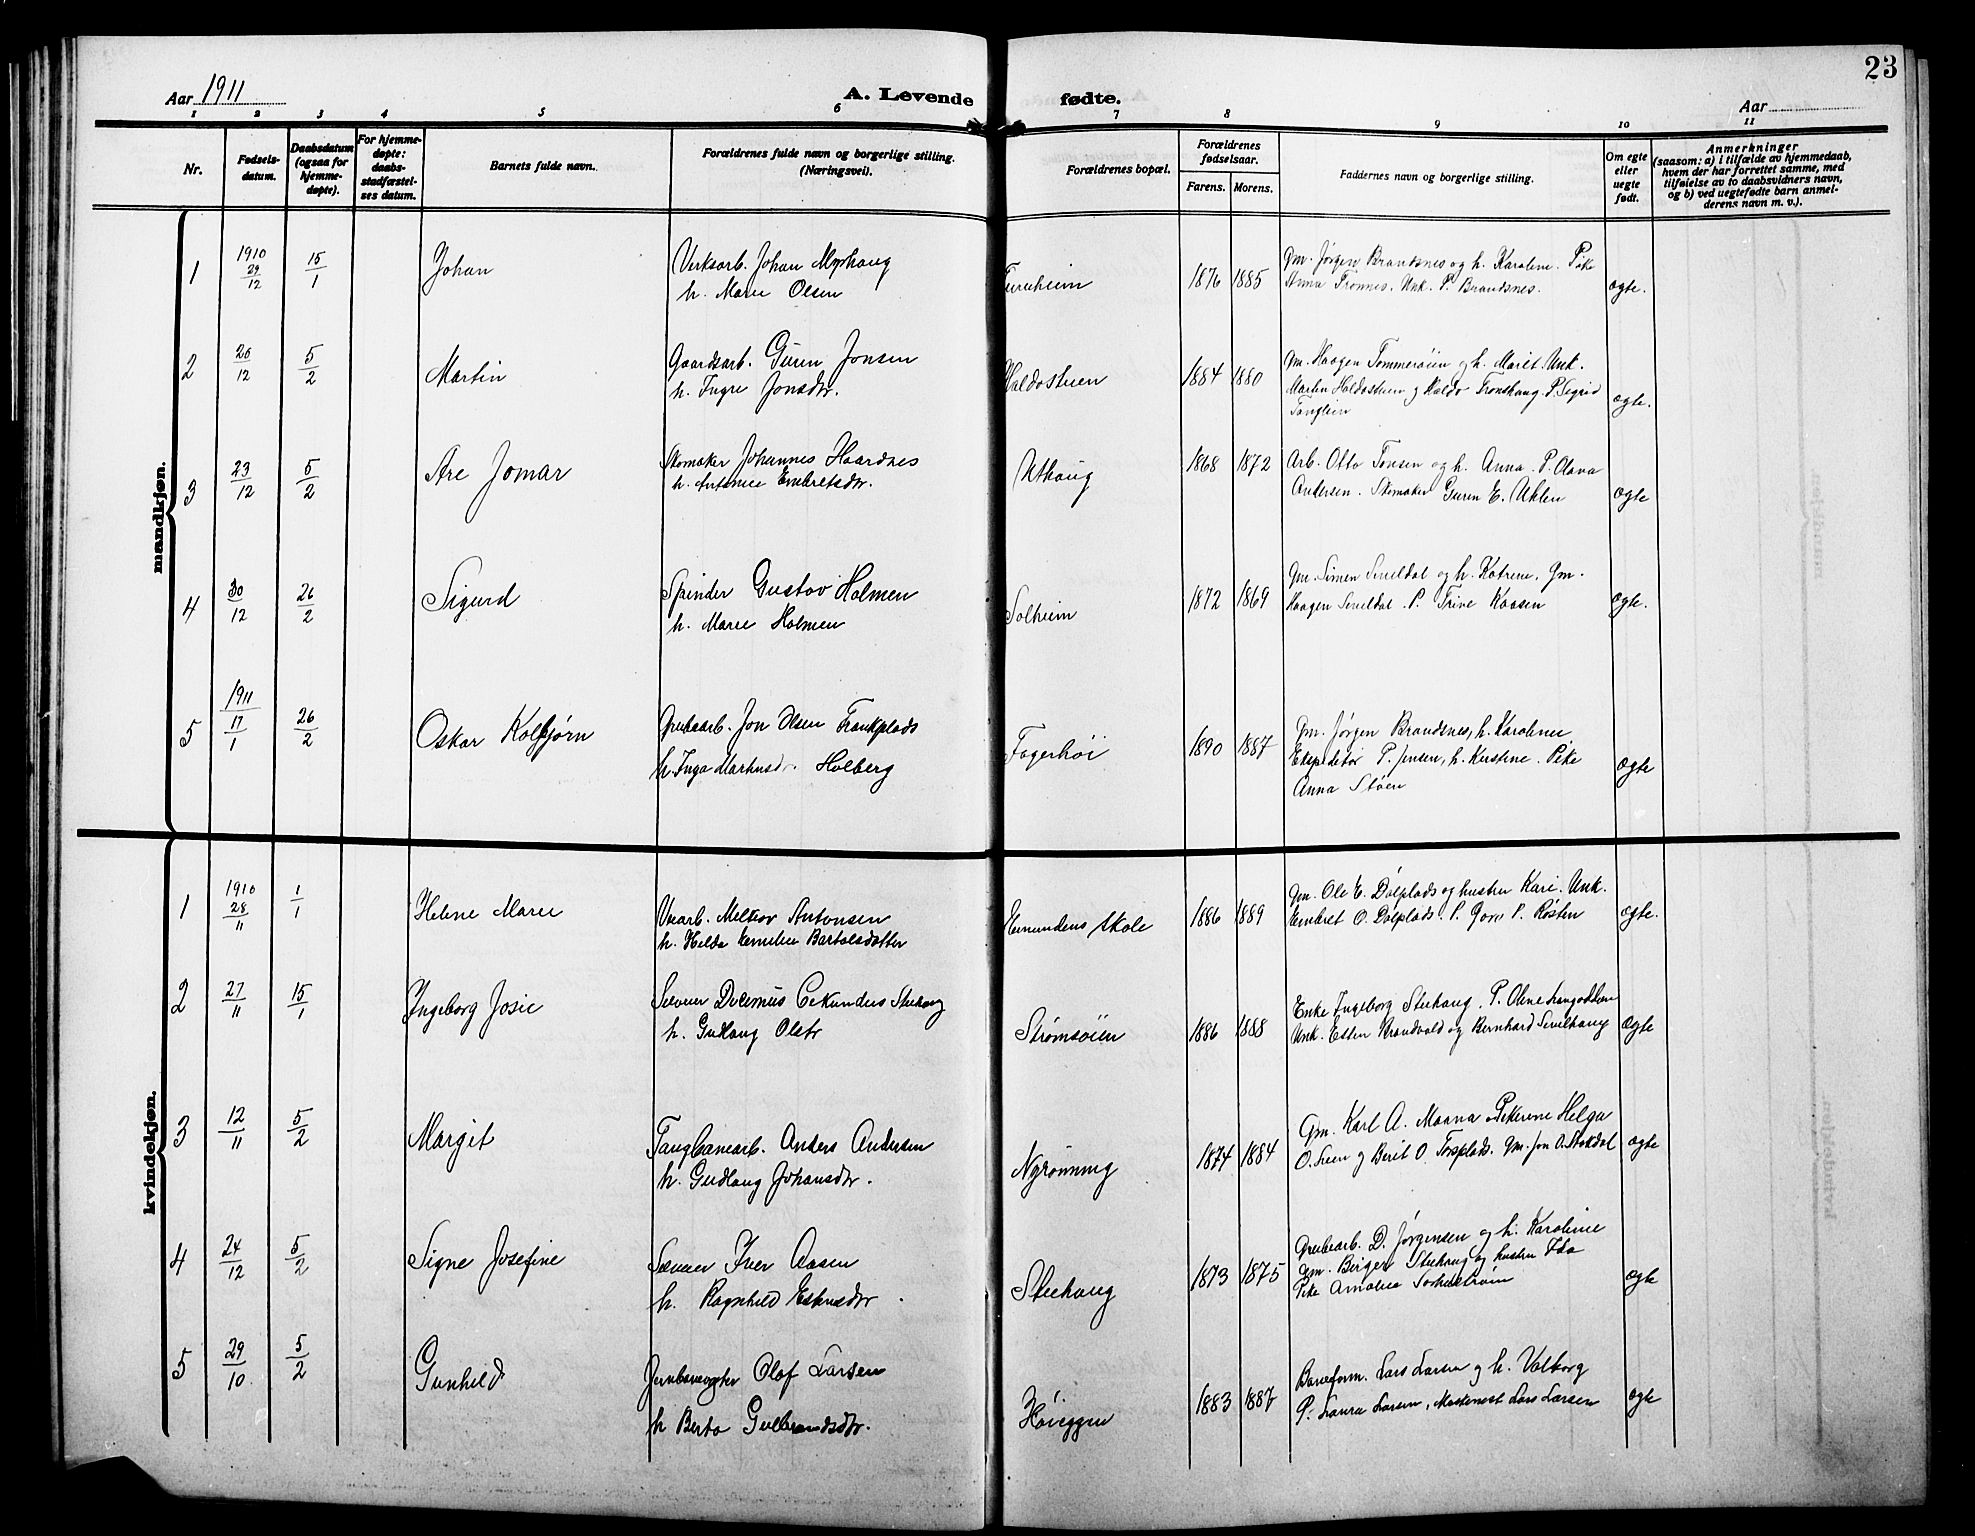 23
Aar 1911
A. Levende fødte.
Aar
1 2 3 4 5 6 7 8 9 10 11
Nr.
Fødsels-
datum.
Daabsdatum
(ogsaa for
hjemme-
døpte).
For hjemme-
døpte:
daabs-
stadfæstel-
ses datum.
Barnets fulde navn.
Forældrenes fulde navn og borgerlige stilling.
(Næringsvei).
Forældrenes bopæl.
Forældrenes
fødselsaar.
Farens. Morens.
Faddernes navn og borgerlige stilling.
Om egte
eller
uegte
født.
Anmerkninger
(saasom: a) i tilfælde av hjemmedaab,
hvem der har forrettet samme, med
tilføielse av to daabsvidners navn,
og b) ved uegtefødte barn anmel-
derens navn m. v.).
mandkjøn.
1 1910 29/12 15/1 Johan
Verksarb. Johan Myrhaug
h. Marie Olsen
Furuheim 1876 1885
Gm. Jørgen Brandsnes og h. Karoline. Pike
Anna Trønnes. Unk. P. Brandsnes.
ægte.
2 26/12 5/2 Martin
Gaardsarb. Guren Jonsen
h. Ingre Jonsdtr.
Haldostuen 1884 1880
Gm. Haagen Tommerøien og h. Marit. Unk.
Martin Haldostuen og Haldo Tronshaug. P. Sigrid
ægte.
3 23/12 5/2 Are Jomar
Skomaker Johannes Haardnes
h. Antonie Embretsdr.
Uthaug 1868 1872
Arb. Otto Tonsen og h. Anna. P. Olava
Andersen. Skomaker Guren E. Uhlen
ægte
4 30/12 26/2 Sigurd
Spinder Gustav Holmen
h. Marie Holmen
Solheim 1872 1869
Gm. Simen Sivildal og h. Katrine. Gm.
Haagen Sivildal. P. Trine Kaasen
ægte.
5 1911 17/1 26/2 Oskar Kolbjørn
Grubearb. Jon Olsen Trankplads
h. Inga Martinusdr. Holberg
Fagerhøi 1890 1887
Gm. Jørgen Brandsnes, h. Karoline
Ekspeditør P. Jensen, h. Kerstine. Pike
Anna Støen
ægte
kvindekjøn.
1 1910 28/11 1/1 Helene Marie
Veiarb. Meltior Antonsen
h. Hilda Emilie Bartolsdatter
Emundens skole 1886 1889
Gm. Ole E. Dølplads og hustru Kari. Unk.
Embret O. Dølplads. P. Goro P. Røsten
ægte.
2 27/11 15/1 Ingeborg Josie
Decimus Sekundus Stuehaug
h. Gudlaug Olsdr
Strømsøien 1886 1888
Enke Ingeborg Stuehaug. P. Oline
Unk. Esten Strandvold og Bernhard Sivilhaug
ægte
3 12/11 5/2 Margit
Tangbanearb. Anders Andersen
h. Gudlaug Johansdtr.
Nyrønning 1874 1884
Gm. Karl A. Moana Pikerene Helga
O. Lien og Berit O. Torsplads. Gm. Jon A. Stokdal
ægte
4 24/12 5/2 Signe Josefine
Iver Aasen
h. Ragnhild Eskusdtr.
Stuehaug 1873 1875
Grubearb. D. Jørgensen og h. Karoline
Gm. Birger Stuehaug og hustru Ida
Pike Amalia
ægte
5 29/10 5/2 Gunhild
Jernbanevogter Olaf Larsen
h Berta Gulbrandsdtr.
Høieggen 1883 1887
Baneform. Lars Larsen og h. Valborg
P. Laura Larsen, Mastemest Lars Larsen
ægte